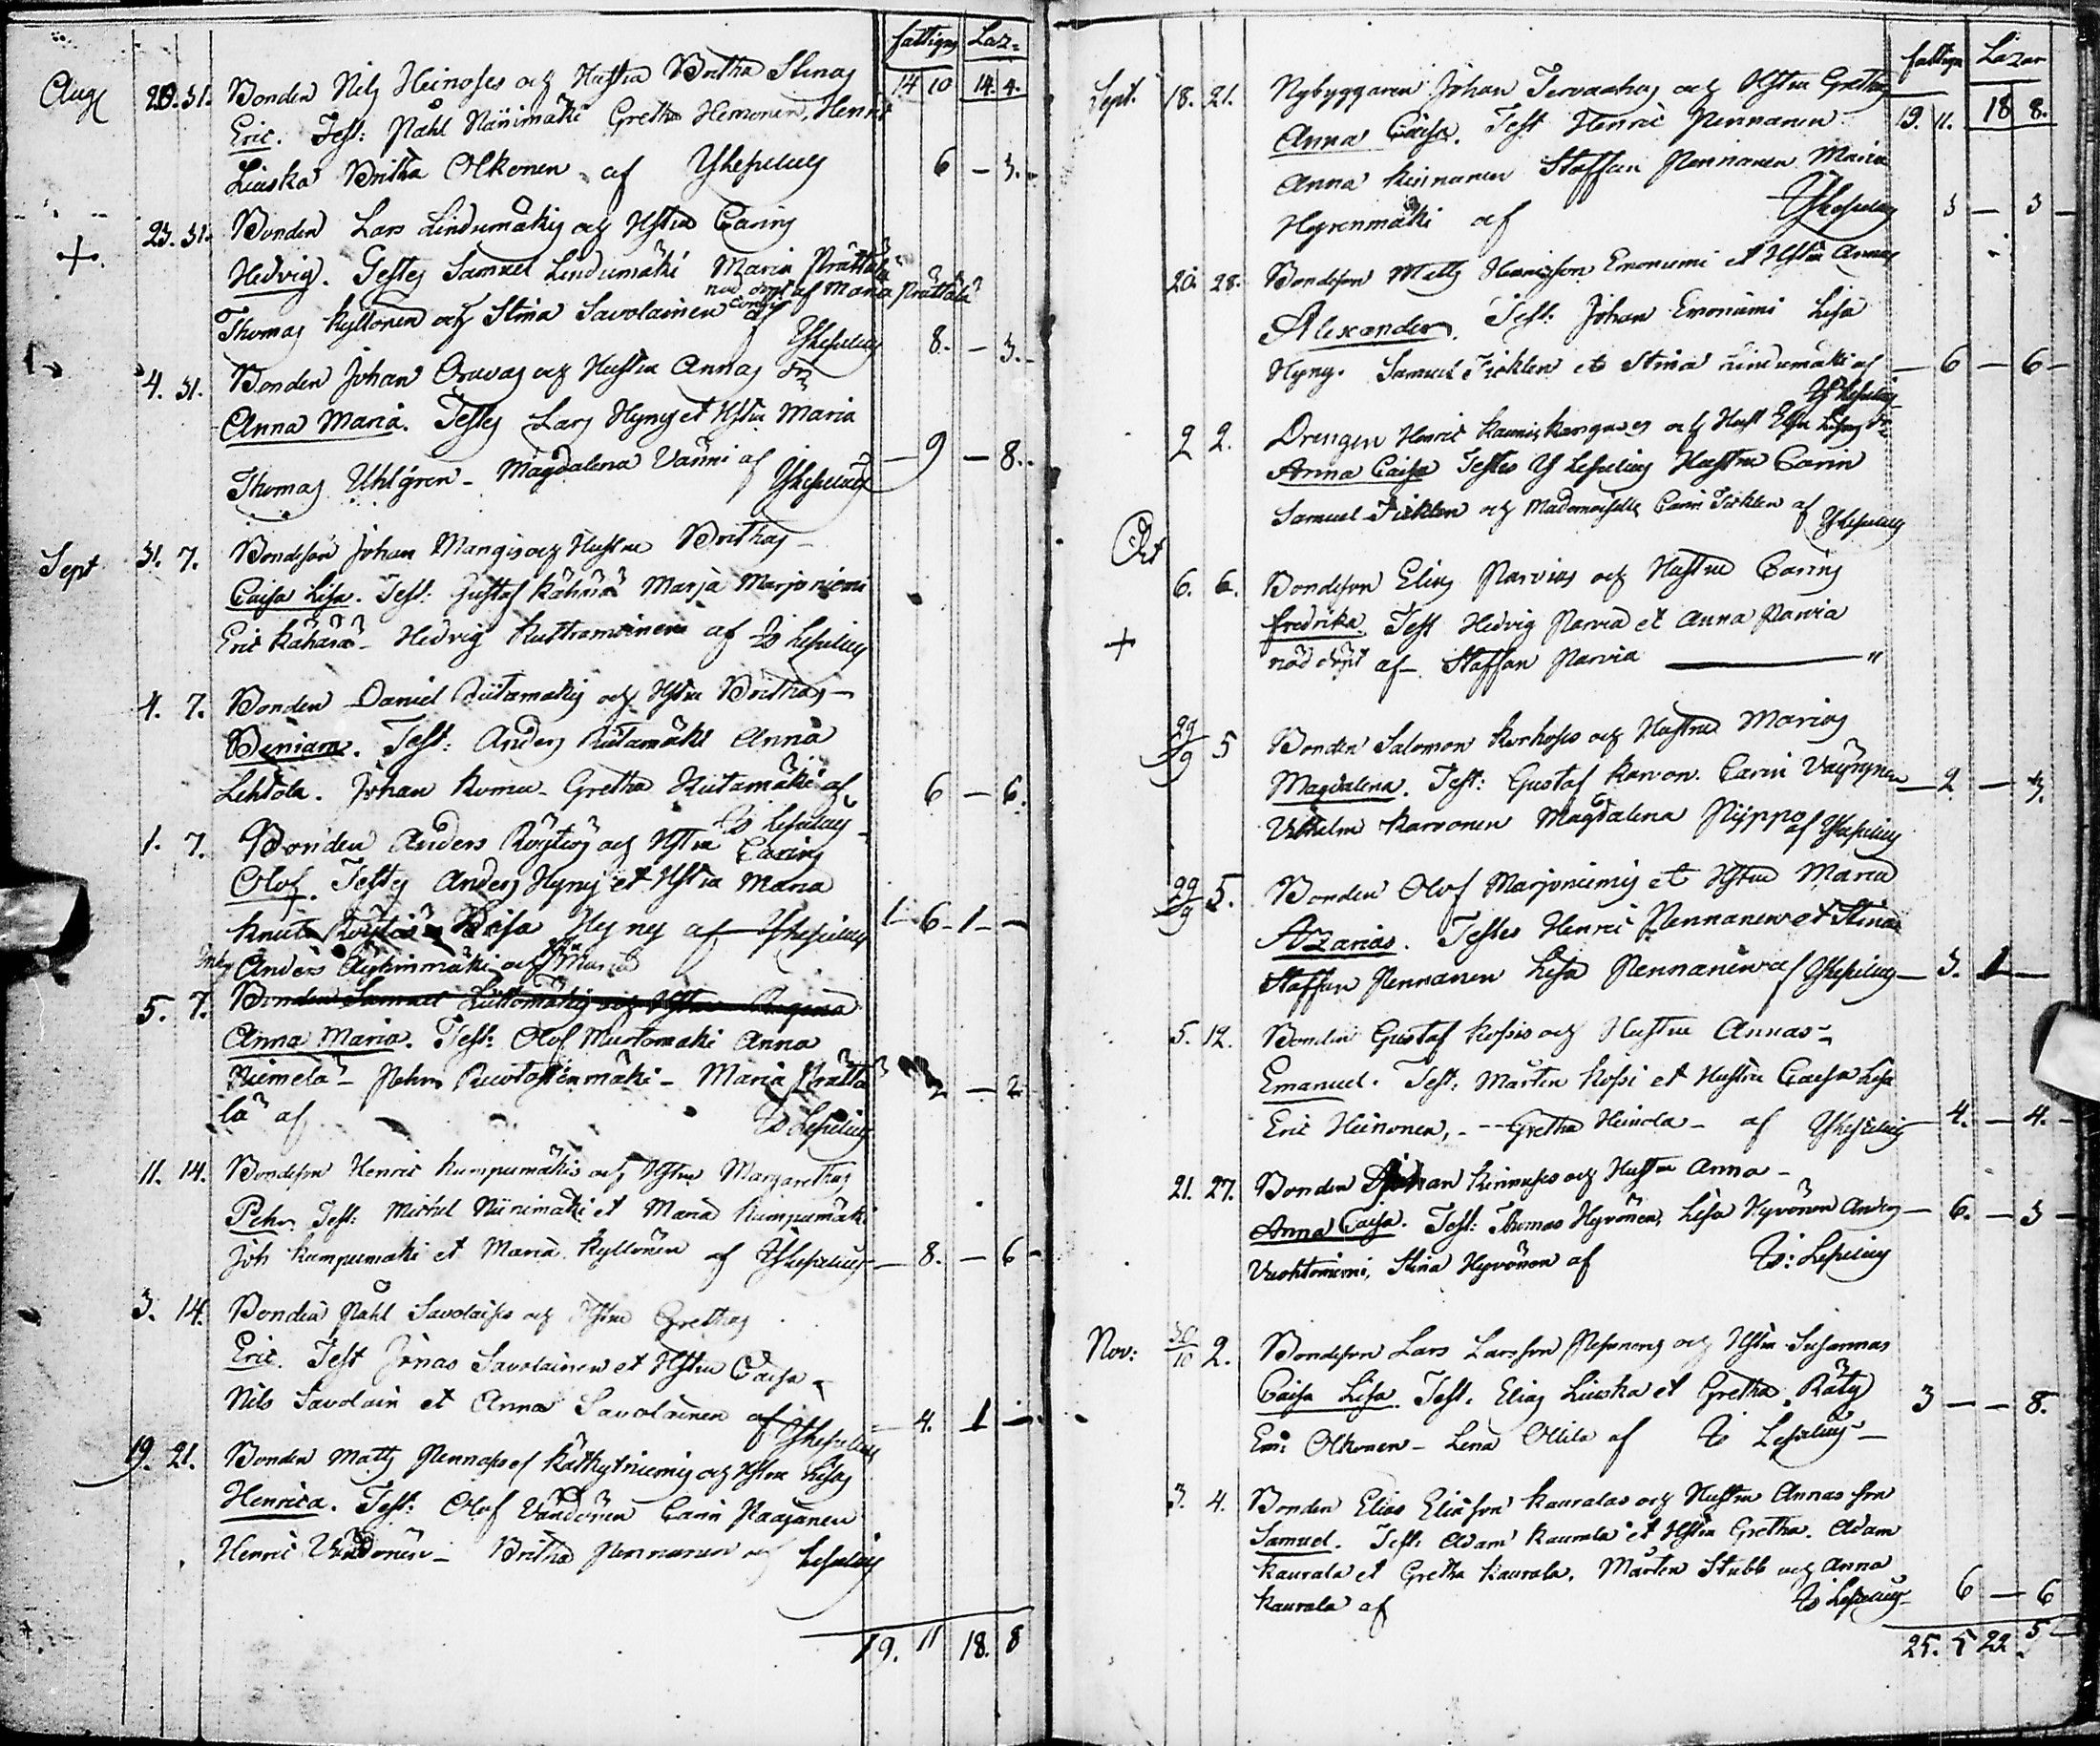 fattigas Laz=
14 10 14. 4.
Aug 20. 31. Bonden Nils Heinoses och Hustru Britha Stinas
Eric. Test: Påhl Niinimäki Gretha Heinonen, Henric
Liuska Britha Olkonen af 6 – 3.
23. 31. Bonden Lars Lindumäkis och Hstru Carins
+ Hedvig. Testes Samuel Lindumäki Maria Prättälä
nöd döpt af Maria Prättälä
Thomas Kyllönen och Stina Savolainen af 8. – 3.
4. 31. Bonden Johan Oravas och Hustru Annas dr
Anna Maria. Testes Lars Hyny et Hstru Maria
Thomas Uhlgren – Magdalena Vänni af – 9 – 8.
Sept 31. 7. Bondeson Johan Mangis och Hustru Brithas –
Caisa Lisa. Test: Gustaf Kähärä Marja Marjoniemi
Eric Kähärä – Hedvig af
4. 7. Bonden Daniel Riitamäkis och Hstru Brithas –
Beniam. Test: Anders Riitamäki Anna
Lehtola. Johan – Gretha Riitamäki af 6 – 6.
1. 7. Bonden Anders Röytiös och Hstru Carins
Olof. Testes Anders Hyny et Hstru Maria
Knut Röytiö Brisa Hyny af 1– 6– 1– –
Anders och Hstru Maria
5. 7. Bonden Samuel och Hstru
Anna Maria. Test: Olof Murtomäki Anna
Niemelä – Pehr – Maria Prättä – 2
lä af
11. 14. Bondeson Henric Kumpumäkis och Hstru Margarethas
Pehr. Test: Michel Niinimäki et Maria Kumpumäki
Joh Kumpumäki et Maria Kyllönen af – 8. – 6 –
3. 14. Bonden Påhl Savolaises och Hstru Grethas
Eric. Test Jonas Savolainen et Hstru Caisa –
Nils Savolain et Anna Savolainen af – 4. 1 –
19. 21. Bonden Matts Pennases Kätkytniemis och Hstru Lisas
Henrica. Test: Olof Vändönen Carin Paajanen
Henric Vändönen – Britha Pennanen af
19. 11 18. 8
fattiga Lazar
19. 11. 18 8.
Sept. 18. 21. Nybyggaren Johan Tervaahos och Hstru Grethas
Anna Caisa. Test Henric Pennanen
Anna Kinnunen Staffan Pennanen Maria
Hyrenmäki af 3 – 3 –
20. 28. Bondeson Matts Henricsson Emoniemi et Hstru Annas
Alexander. Test: Johan Emoniemi Lisa
Hyny. Samuel Ticklen et Stina Lindumäki af – 6 – 6 –
2 2. Drengen Henric Kauniskangas och Hust Elsa Lisas dr
Anna Caisa Testes Hustru Carin
Samuel Ticklen och Mademoiselle Carin Ticklen af
Oct
6. 6. Bondeson Elias Parvias och Hustru Carins
Fredrika. Test Hedvig Parvia et Anna Parvia
+ nöd döpt af – Staffan Parvia — "
29/9 5 Bonden Salomon Korhoses och Hustru Marias
Magdalena. Test: Gustaf Karvon. Carin Väyrynen – 2. – 3.
Vilhelm Karvonen Magdalena Piippo af
29/9 5. Bonden Olof Marjoniemis et Hstru Maria
Azarias. Testes Henric Pennanen et Stina
Staffan Pennanen Lisa Pennanen af – 3. 1 –
5. 12. Bonden Gustaf Kosis och Hustru Annas –
Emanuel. Test: Mårten Kossi et Hustru Caisa Lisa
Eric Heinonen, – – Gretha Heinola – af 4. – 4. –
21. 27. Bonden Johan Kinnuses och Hustru Anna –
Anna Caisa. Test: Thomas Hyvönen, Lisa Hyvönen Anders – 6. – 3 –
Vuohtoniemi, Stina Hyvönen af
Nov: 30/10 2. Bondeson Lars Larsson Pesonens och Hstru Susannas
Caisa Lisa. Test. Elias Liuska et Gretha Räty 3 – – 8.
Eric Olkonen – Lena Ollila af
3. 4. Bonden Elias Eliasson Kauralas och Hustru Annas son
Samuel. Test: Adam Kaurala et Hstru Gretha. Adam
Kaurala et Gretha Kaurala. Mårten Stubb och Anna
Kaurala af 6 – 6
25. 5 22. 5